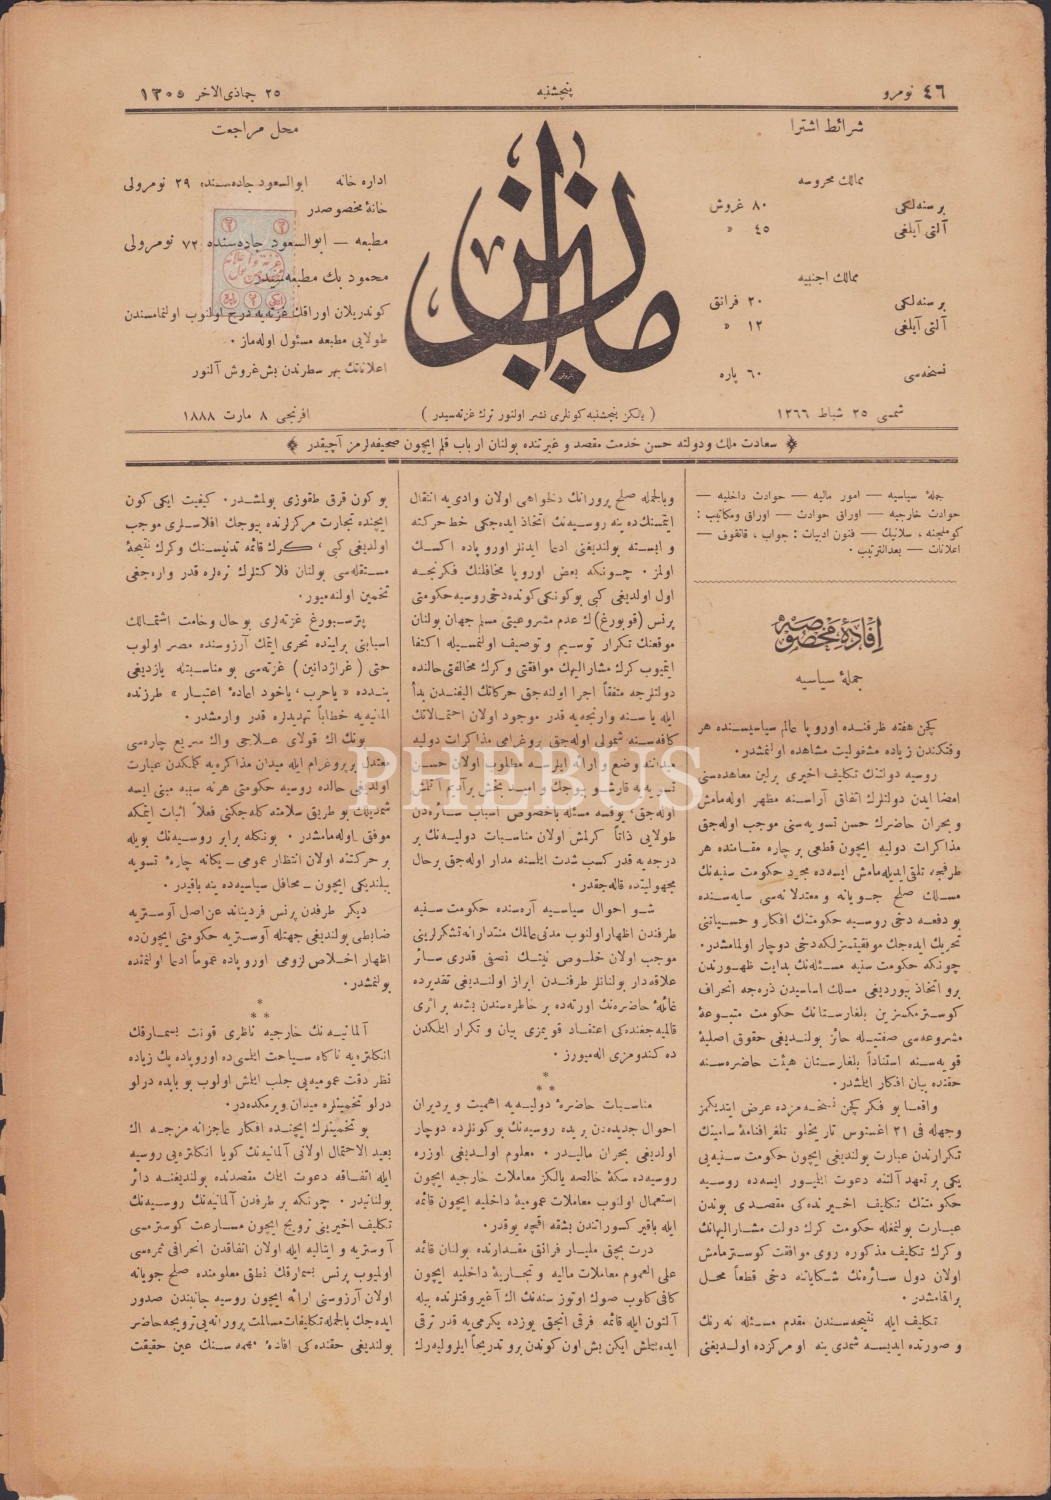 ٤٦ نومرو
پنجشنبه
٢٥ جماذی الاخر ١٣٠٥
شرائط اشترا
ممالك محروسه
بر سنه‌لكی ٨٠ غروش
آلتی آیلغی ٤٥ »
ممالك اجنبیه
بر سنه‌لكی ٢٠ فرانق
آلتی آیلغی ١٢ »
نسخه‌سی ٦٠ پاره
شمسی ٢٥ شباط ١٢٦٦
میزان
( یالكز پنجشنبه كونلری نشر اولنور ترك غزته‌سیدر )
محل مراجعت
اداره خانه ابوالسعود جاده‌سنده ٢٩ نومرولی
خانهٔ مخصوصدر
مطبعه — ابوالسعود جاده‌سنده ٧٢ نومرولی
محمود بك مطبعه‌سیدر
كوندریلان اوراقك غزته‌یه درج اولنوب اولنمامسندن
طولایی مطبعه مسئول اوله‌ماز .
اعلاناتك بهر سطرندن بش غروش آلنور
افرنجی ٨ مارت ١٨٨٨
سعادت ملك ودولته حسن خدمت مقصد و غیرتنده بولنان ارباب قلم ایچون صحیفه‌لرمز آچیقدر
جملهٔ سیاسیه — امور مالیه — حوادث داخلیه —
حوادث خارجیه — اوراق حوادث — اوراق ومكاتیب :
كوملجنه ، سلانیك — فنون ادبیات : جواب ،
اعلانات — بعدالترتیب .
افادهٔ مخصوصه
جملهٔ سیاسیه
كچن هفته ظرفنده اوروپا عالم سیاسیسنده هر
وقتكندن زیاده مشغولیت مشاهده اولنمشدر.
روسیه دولتنك تكلیف اخیری برلین معاهده‌سنی
امضا ایدن دولتلرك اتفاق آراسنه مظهر اوله‌مامش
و بحران حاضرك حسن تسویه‌سنی موجب اوله‌جق
مذاكرات دولیه ایچون قطعی بر چاره مقامنده هر
طرفجه تلقی ایدیله‌مامش ایسه‌ده مجرد حكومت سنیه‌نك
مسلك صلح جویانه و معتدلانه‌سی سایه‌سنده
بو دفعه دخی روسیه حكومتنك افكار و حسیاتنی
تحریك ایده‌جك موفقیتسزلكه دخی دوچار اولمامشدر.
چونكه حكومت سنیه مسئله‌نك بدایت ظهورندن
برو اتخاذ بیوردیغی مسلك اساسیدن ذره‌جه انحراف
كوسترمكسزین بلغارستانك حكومت متبوعهٔ
مشروعه‌سی صفتیله حائز بولندیغی حقوق اصلیهٔ
قویه‌سنه استناداً بلغارستان هیئت حاضره‌سنه
حقنده بیان افكار ایلمشدر.
واقعا بو فكر كچن نسخه‌مزده عرض ایتدیكمز
وجهله فی ٢١ اغستوس تاریخلو تلغرافنامهٔ سامینك
تكرارندن عبارت بولندیغی ایچون حكومت سنیه‌یی
یكی بر تعهد آلتنه دعوت ایلیور ایسه‌ده روسیه
حكومتنك تكلیف اخیرنده‌كی مقصدی بوندن
عبارت بولنمغله حكومت كرك دولت مشارالیهانك
و كرك تكلیف مذكوره روی موافقت كوسترمامش
اولان دول سائره‌نك شكایاتنه دخی قطعاً محل
براقمامشدر .
تكلیف ایله نتیجه‌سندن مقدم مسئله نه‌رنك
و صورتده ایدیسه شمدی ینه او مركزده اولدیغنی
وبالجمله صلح پرورانك دلخواهی اولان وادی‌یه انتقال
ایتمسنك‌ده ینه روسیه‌نك اتخاذ ایده‌جكی خط حركته
وابسته بولندیغنی ادعا ایدنلر اوروپاده اكسك
اولمز . چونكه بعض اوروپا محافلنك فكرنجه
اول اولدیغی كبی بو كونكی كونده‌دخی روسیه حكومتی
پرنس (قوبورغ) ك عدم مشروعیتی مسلم جهان بولنان
موقعنك تكرار توسیم و توصیف اولنمسیله اكتفا
ایتمیوب كرك مشارالیهك موافقتی و كرك مخالفتی حالنده
دولتلرجه متفقاً اجرا اولنه‌جق حركاتك الیغندن بدأ
ایله یاسنه وارنجه‌یه قدر موجود اولان احتمالاتك
كافه‌سنه شمولی اوله‌جق پروغرامی مذاكرات دولیه
میداننه وضع و ارائه ایلرسه مطلوب اولان حسن
تسویه‌یه قارشو بر جك و امید بخش برآدیم آتلمش
اوله‌جق، یوقسه مسئله باخصوص اسباب سائره‌دن
طولایی ذاتاً كرلمش اولان مناسبات دولیه‌نك بر
درجه‌یه قدر كسب شدت ایلمسنه مدار اوله‌جق برحال
مجهولیتده قاله‌جقدر .
شو احوال سیاسیه آره‌سنده حكومت سنیه
طرفندن اظهار اولنوب مدنی عالمك منتدارانه تشكرلرینی
موجب اولان خلوص نیتك نصفی قدری سائر
علاقه‌دار بولنانلر طرفندن ابراز اولندیغی تقدیرده
غائلهٔ حاضره‌نك اورته‌ده بر خاطره‌سندن بشقه براثری
قالمیه‌جغنده‌كی اعتقاد قویمزی بیان و تكرار ایلمكدن
ده كندومزی اله‌میورز .
* * *
مناسبات حاضرهٔ دولیه‌یه اهمیت ویردیران
احوال جدیده‌دن بریده روسیه‌نك بو كونلرده دوچار
اولدیغی بحران مالیدر . معلوم اولدیغی اوزره
روسیه‌ده سكهٔ خالصه یالكز معاملات خارجیه ایچون
استعمال اولنوب معاملات عمومیهٔ داخلیه ایچون قائمه
ایله باقیر كسوراتندن بشقه اقچه یوقدر .
درت بچق ملیار فرانق مقدارنده بولنان قائمه
علی العموم معاملات مالیه و تجاریهٔ داخلیه ایچون
كافی كلوب صوك اوتوز سنه‌نك اك آغیر وقتلرنده بیله
آلتون ایله قائمه فرقی انجق یوزده یكرمی‌یه قدر ترقی
ایده‌بیلمش ایكن بش اون كوندن برو تدریجاً ایلرولیه‌رك
بو كون قرق طقوزی بولمشدر. كیفیت ایكی كون
ایچنده تجارت مركزلرنده بیوجك افلاسلری موجب
اولدیغی كبی ، كرك قائمه تدنیسنك وكرك نتیجهٔ
مستقله‌سی بولنان فلاكتلرك نره‌لره قدر واره‌جغی
تخمین اولنه‌میور.
پترسبورغ غزته‌لری بو حال وخامت اشتمالك
اسبابنی برلینده تحری ایتمك آرزوسنده مصر اولوب
حتی (غراژدانین) غزته‌سی بو مناسبتله یازدیغی
بندده « یاحرب ، یاخود اعادهٔ اعتبار » طرزنده
المانیه‌یه خطاباً تهدیدلره قدر وارمشدر.
بونك اك قولای علاجی واك سریع چاره‌سی
معتدل بر پروغرام ایله میدان مذاكره‌یه كلمكدن عبارت
اولدیغی حالده روسیه حكومتی هرنه سببه مبنی ایسه
شمدیلك بو طریق سلامته كله‌جكنی فعلاً اثبات ایتمكه
موفق اوله‌مامشدر. بونكله برابر روسیه‌نك بویله
بر حركتنه اولان انتظار عمومی — یكانه چارهٔ تسویه
بیلندیكی ایچون — محافل سیاسیه‌ده ینه باقیدر .
دیكر طرفدن پرنس فردیناند عن اصل آوستریه
ضابطی بولندیغی جهتله آوستریه حكومتی ایچون‌ده
اظهار اخلاص لزومی اوروپاده عموماً ادعا اولنمقده
بولنمشدر.
* * *
آلمانیه‌نك خارجیه ناظری قونت بسمارقك
انكلتره‌یه ناكاه سیاحت ایلمسی‌ده اوروپاده پك زیاده
نظر دقت عمومیه‌یی جلب ایلمش اولوب بو بابده درلو
درلو تخمینلره میدان ویرمكده‌در.
بو تخمینلرك ایچنده افكار عاجزانه مزجه اك
بعید الاحتمال اولانی آلمانیه‌نك كویا انكلتره‌یی روسیه
ایله اتفاقه دعوت ایلمك مقصدنده بولندیغنه دائر
بولنانیدر . چونكه بر طرفدن آلمانیه‌نك روسیه‌نك
تكلیف اخیرینی ترویج ایچون مسارعت كوسترمسی
آوستریه و ایتالیه ایله اولان اتفاقدن انحرافی ثمره‌سی
اولمیوب پرنس بسمارقك نطق معلومنده صلح جویانه
اولان آرزوسنی ارائه ایچون روسیه جانبندن صدور
ایده‌جك بالجمله تكلیفات مسالمت پرورانه‌یی ترویجه حاضر
بولندیغی حقنده‌كی افادهٔ مهمه‌سنك عین حقیقت
PHEBUS